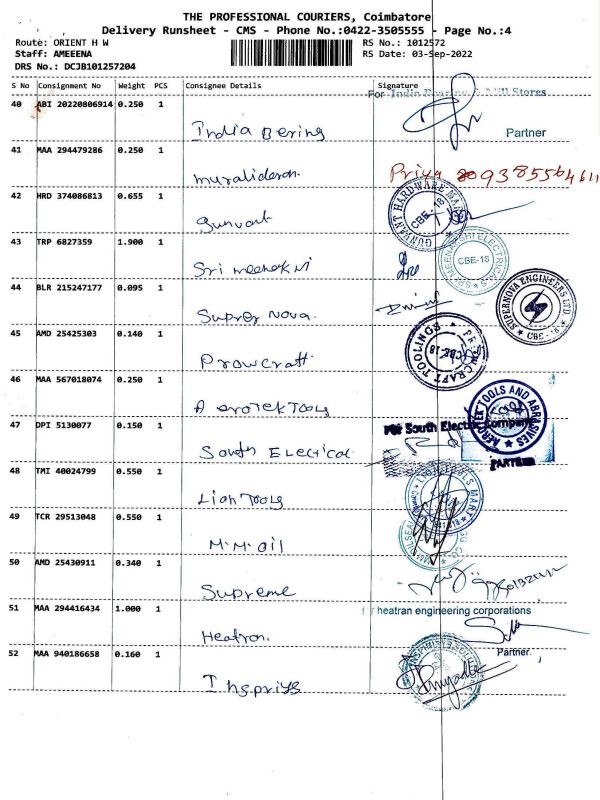 THE PROFESSIONAL COURIERS, Coimbatore
Delivery Runsheet - CMS - Phone No.:0422-3505555 - Page No.:4
Route: ORIENT H W RS No.: 1012572
Staff: AMEEENA RS Date: 03-Sep-2022
DRS No.: DCJB101257204
S No Consignment No Weight PCS Consignee Details Signature
40 ABI 20220806914 0.250 1 For India Bearing & Mill Stores
India Bering Partner
41 MAA 294479286 0.250 1
muralidaran. Priya 9385564611
42 HRD 374086813 0.655 1 GUNVANT HARDWARE MART CBE-18
Gunvant
43 TRP 6827359 1.900 1 SRI MEENAKSHI ELECTRICALS CBE-18
Sri meenakshi
44 BLR 215247177 0.095 1 SUPERNOVA ENGINEERS LTD. CBE-18.
Super Nova.
45 AMD 25425303 0.140 1 TOOLINGS CBE-18
Prowcraft
46 MAA 567018074 0.250 1 AEROTEK TOOLS AND ABRASIVES
Aerotek Tools
47 DPI 5130077 0.150 1 For South Electric Company
South Electical PARTNER
48 TMI 40024799 0.550 1
Lion Tools
49 TCR 29513048 0.550 1
M.M. oil
50 AMD 25430911 0.340 1
Supreme
51 MAA 294416434 1.000 1 heatran engineering corporations
Heatron. Partner.
52 MAA 940186658 0.160 1